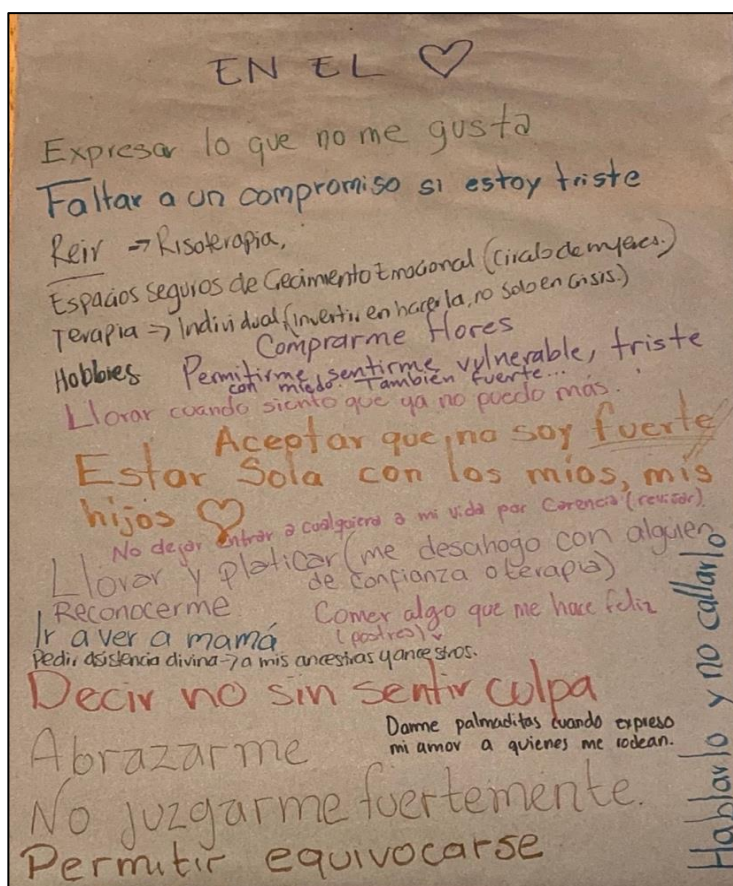 EN EL ♡
Expresar lo que no me gusta
Faltar a un compromiso si estoy triste
Reir → Risoterapia,
Espacios seguros de Crecimiento Emocional (Circulo de mujeres.)
Terapia → Individual (invertir en hacerla, no solo en crisis.)
Comprarme Flores
Hobbies
Permitirme sentirme vulnerable, triste
con miedo. También fuerte...
Llorar cuando siento que ya no puedo más.
Aceptar que no soy fuerte
Estar Sola con los míos, mis
hijos ♡
No dejar entrar a cualquiera a mi vida por Carencia (revisar)
Llorar y platicar (me desahogo con alguien
de confianza o terapia)
Reconocerme
Comer algo que me hace feliz
(postres)
Ir a ver a mamá
Pedir asistencia divina → a mis ancestras y ancestros.
Decir no sin sentir culpa
Darme palmaditas cuando expreso
mi amor a quienes me rodean.
Abrazarme
No juzgarme fuertemente.
Permitir equivocarse
Hablarlo y no callarlo